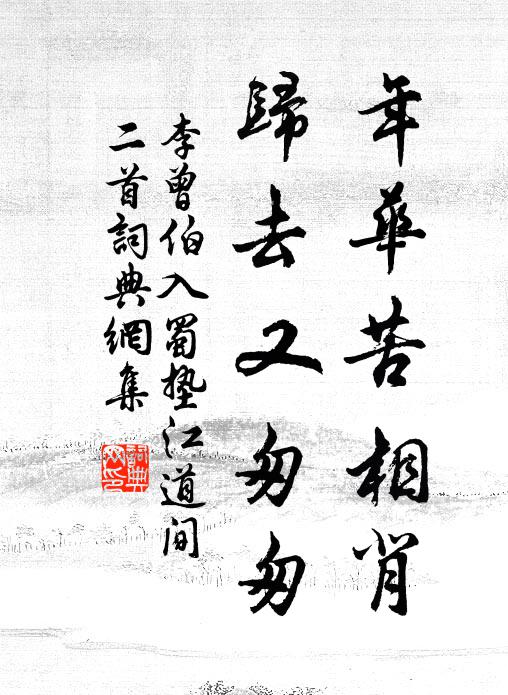 年華苦相肖
歸去又匆匆
李曾伯入蜀墊江道间
二首詞典網集
詞典网印